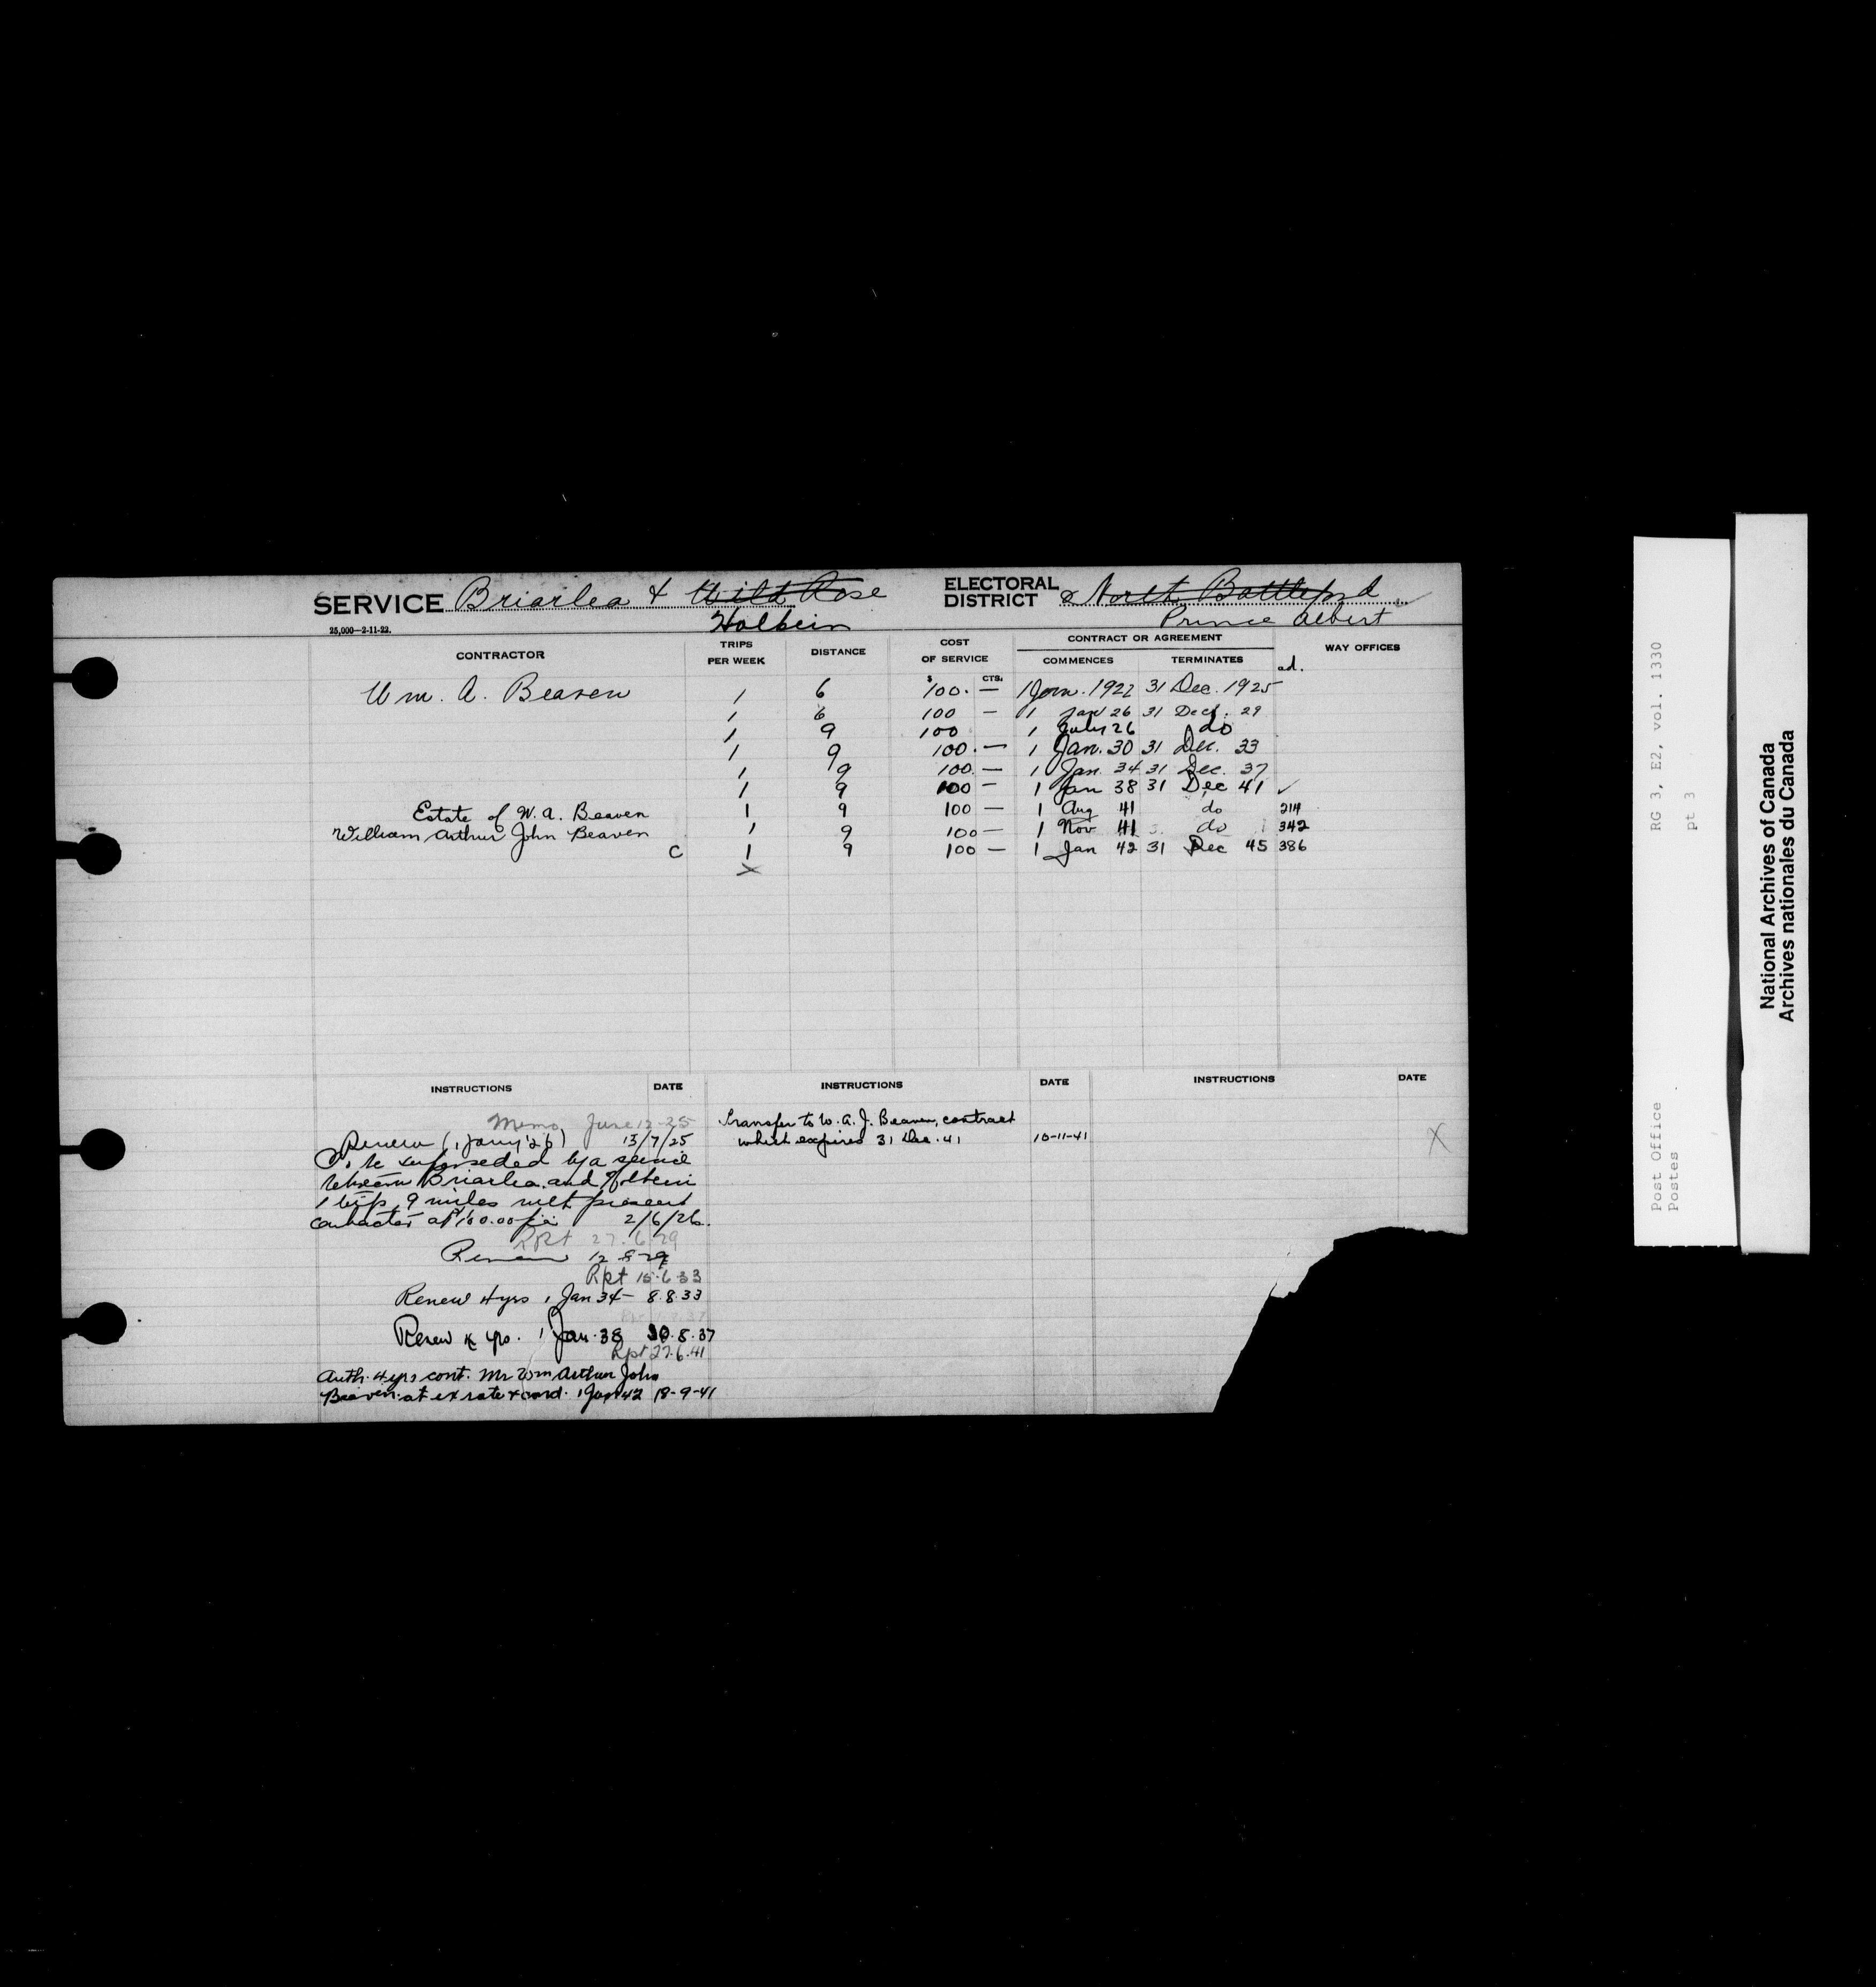 SERVICE Briarlea & Wild Rose ELECTORAL DISTRICT & North Battleford
25,000—2-11-22. Holbein Prince Albert
CONTRACTOR TRIPS PER WEEK DISTANCE COST OF SERVICE CONTRACT OR AGREEMENT WAY OFFICES
$ CTS. COMMENCES TERMINATES ad.
Wm. A. Beaven 1 6 100. — 1 Jan. 1922 31 Dec. 1925
1 6 100 — 1 Jan 26 31 Dec. 29
1 9 100 1 July 26 do
1 9 100. — 1 Jan. 30 31 Dec. 33
1 9 100. — 1 Jan. 34 31 Dec. 37
1 9 100 — 1 Jan 38 31 Dec 41 ✓
Estate of W. A. Beaven 1 9 100 — 1 Aug 41 do 214
William Arthur John Beaven 1 9 100 — 1 Nov 41 do 342
C 1 9 100 — 1 Jan 42 31 Dec 45 386
X
INSTRUCTIONS DATE
Memo June 12-25
Renew (1 Jany '26) 13/7/25
To be superseded by a service
between Briarlea and Holbein
1 trip 9 miles with present
contractor at $100.00 p.a. 2/6/26.
Rpt 27.6.29
Renew 12-8-29
Rpt 15.6.33
Renew 4 yrs 1 Jan 34 — 8.8.33
Renew 4 yrs. 1 Jan. 38 30.8.37
Rpt 27.6.41
Auth. 4 yrs cont. Mr Wm Arthur John
Beaven at ex rate & cond. 1 Jan 42 18-9-41
INSTRUCTIONS DATE
Transfer to W. A. J. Beaven, contract
which expires 31 Dec. 41 10-11-41
INSTRUCTIONS DATE
X
RG 3, E2, vol. 1330
pt 3
Post Office
Postes
National Archives of Canada
Archives nationales du Canada